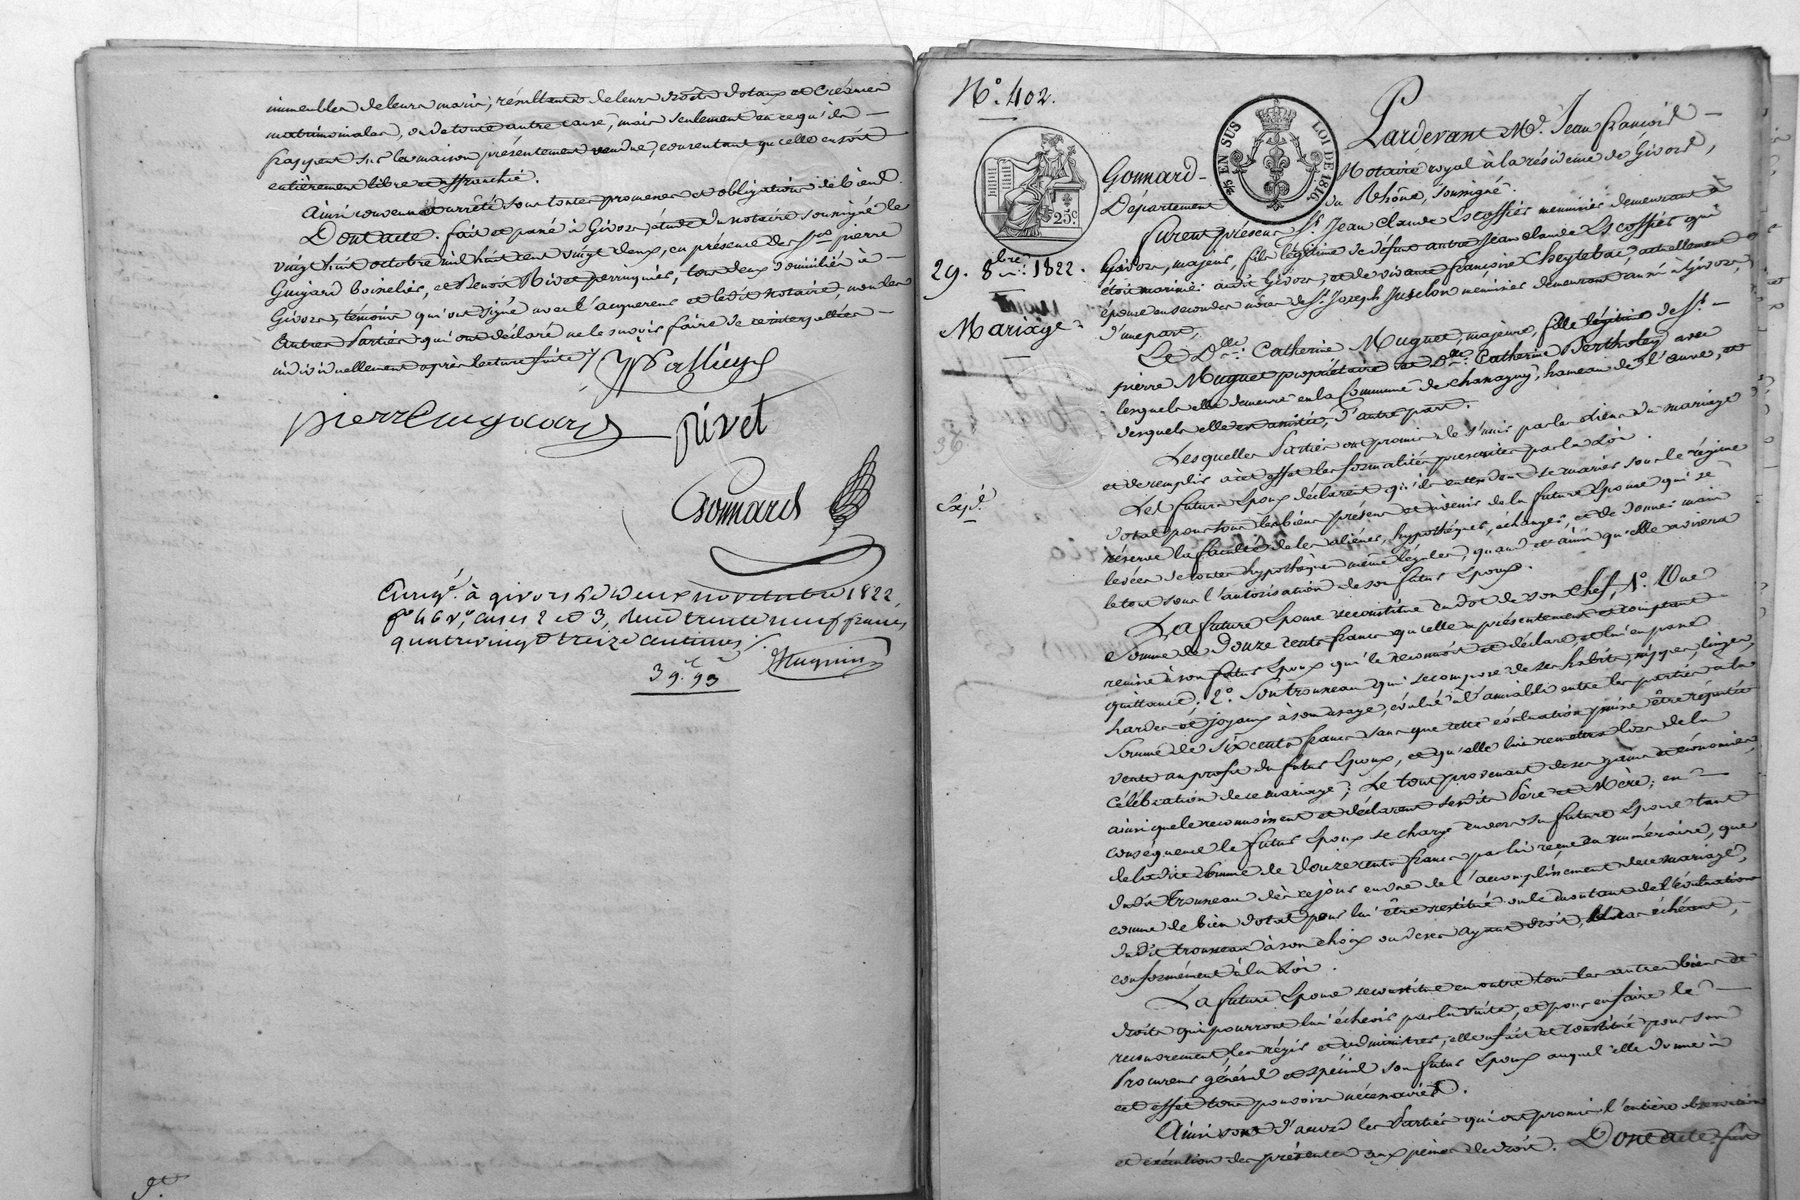 immeubles de leurs maris, résultants de leurs droits dotaux et créances
matrimoniales, ou de toute autre cause, mais seulement en ce qu'ils
frappent sur la maison présentement vendue, consentant qu'elle en soit
entièrement libre et affranchie.
Ainsi convenu et arrêté sous toutes promesses et obligations de biens.
Dont acte. fait et passé à Givors étude du notaire soussigné le
vingt huit octobre mil huit cent vingt deux, en présence des Srs pierre
Guigard boisselier, et Benoit Rivet perruquier, tous deux domiciliés à
Givors, témoins qui ont signé avec l'acquereur et ledit notaire, non les
autres Parties qui ont déclaré ne le savoir faire de ce interpellées
individuellement après lecture faite
pierre
rivet
Gonnard
Enreg. à givors le deux novembre 1822,
fo 46 vo, cases 2 et 3, Reçu trente neuf francs
quatrevingt treize centimes
39. 93
N.° 402.
EN SUS
LOI DE 1816
25c
Pardevant Me Jean françois
Gonnard Notaire royal à la résidence de Givors,
Département du Rhône, soussigné.
29. 8bre 1822.
Mariage
Expé.
furent présens Sr Jean Claude Escoffier menuisier demeurant à
Givors, majeur, fils légitime de défunt autre Jean claude Escoffier qui
étoit marinier audit Givors, et de vivante françoise actuellement
épouse en secondes nôces de Sr Joseph menuisier demeurant aussi à Givors,
d'une part;
Et Dlle Catherine Muguet, majeure, fille légitime de Sr
pierre Muguet propriétaire et Dme Catherine Bertholey avec
lesquels elle demeure en la Commune de chassagny, hameau de et
desquels elle est assistée, d'autre part.
Lesquelles Parties ont promis de s'unir par les liens du mariage
et de remplir à cet effet les formalités prescrites par la Loi.
Les futurs Epoux déclarent qu'ils entendent se marier sous le régime
dotal pour tous les biens présens et avenir de la future Epouse qui se
réserve la faculté de les aliéner, hypothéquer, échanger, et de donner main
levée de toutes hypothèques même légales, quand et ainsi qu'elle avisera
le tout sous l'autorisation de son futur Epoux.
La future Epouse se constitue en dot de son Chef, 1.° Une
Somme de Douze cents francs qu'elle a présentement et comptant
remise à son futur Epoux qui le reconnoît et déclare et lui en passe
quittance; 2.° Son trousseau qui se compose de ses habits, nippes, linges,
hardes et joyaux à son usage, évalué à l'amiable entre les parties à la
Somme de Six cents francs sans que cette évaluation puisse être réputée
vente au profit du futur Epoux, et qu'elle lui remettra lors de la
célébration de ce mariage; Le tout provenant de ses gains et économies,
ainsi que le reconnoissent et déclarent sesdits Père et Mère; en
conséquence le futur Epoux se charge envers sa future Epouse tant
de ladite Somme de Douze cents francs par lui reçue en numéraire, que
dudit trousseau dès ce jour en vue de l'accomplissement de ce mariage,
comme de bien dotal pour lui être restitué ou le montant de l'évaluation
dudit trousseau à son choix ou de ses ayant droit, le cas échéant,
conformément à la Loi.
La future Epouse se constitue en outre tous les autres biens et
droits qui pourront lui échoir par la suite, et pour en faire le
recouvrement, les régir et administrer, elle fait et constitue pour son
Procureur général et spécial son futur Epoux auquel elle donne à
cet effet tous pouvoirs nécessaires.
Ainsi sont d'accord les Parties qui ont promis l'entière observation
et exécution des présentes aux peines de droit. Dont acte. fait